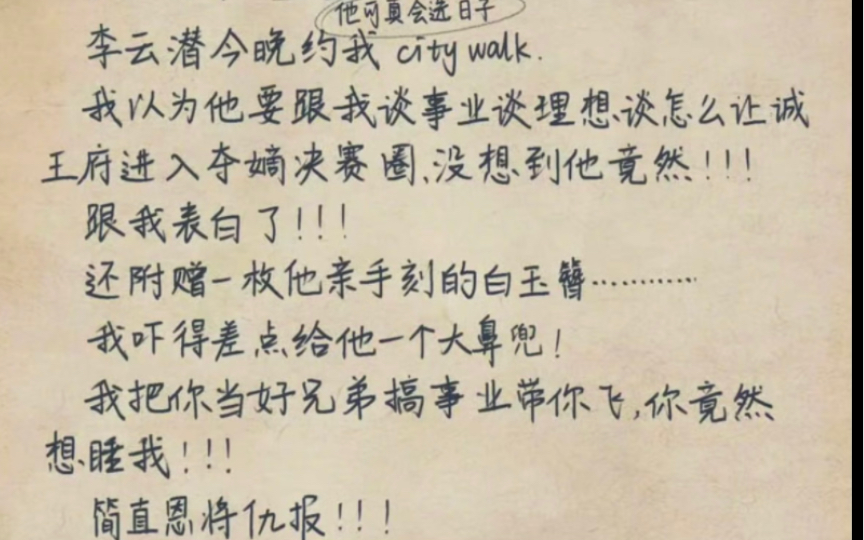 他可真会选日子
李云潜今晚约我 city walk.
我以为他要跟我谈事业谈理想谈怎么让诚
王府进入夺嫡决赛圈、没想到他竟然！！！
跟我表白了！！！
还附赠一枚他亲手刻的白玉簪…………
我吓得差点给他一个大鼻兜！
我把你当好兄弟搞事业带你飞,你竟然
想睡我！！！
简直恩将仇报！！！